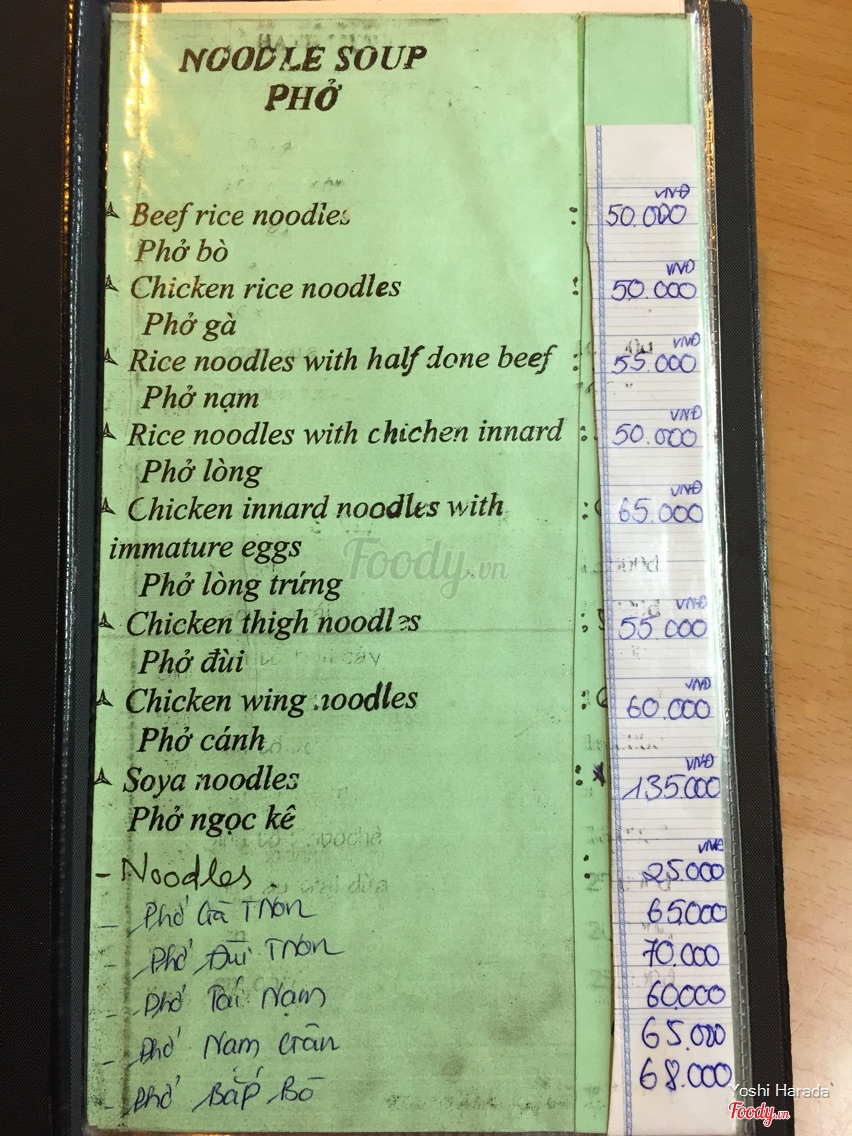 NOODLE SOUP
PHỞ
VNĐ
Beef rice noodles : 50.000
Phở bò
VNĐ
Chicken rice noodles : 50.000
Phở gà
VNĐ
Rice noodles with half done beef : 55.000
Phở nạm
VNĐ
Rice noodles with chichen innard : 50.000
Phở lòng
VNĐ
Chicken innard noodles with : 65.000
immature eggs
Phở lòng trứng
VNĐ
Chicken thigh noodles : 55.000
Phở đùi
VNĐ
Chicken wing noodles : 60.000
Phở cánh
VNĐ
Soya noodles : 135.000
Phở ngọc kê
VNĐ
- Noodles : 25.000
- Phở Gà Trộn 65.000
- Phở Đùi Trộn 70.000
- Phở Tái Nạm 60.000
- Phở Nạm Gân 65.000
- Phở Bắp Bò 68.000
Foody.vn
Yoshi Harada
Foody.vn